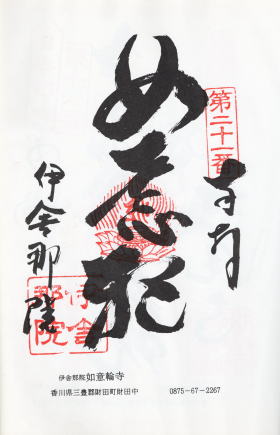 第二十一番
奉拝
如意輪
伊舎那院
伊舎那院
伊舎那院如意輪寺
香川県三豊郡財田町財田中 0875-67-2267